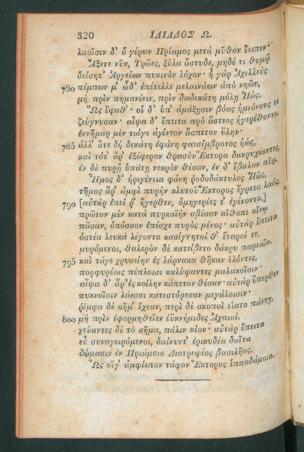 320 ΙΛΙΑΔΟΣ Ω.
λαοῖσιν δ' ὁ γέρων Πρίαμος μετὰ μῦθον ἔειπεν·
Ἄξετε νῦν, Τρῶες, ξύλα ἄστυδε, μηδέ τι θυμῷ
δείσητ' Ἀργείων πυκινὸν λόχον· ἦ γὰρ Ἀχιλλεὺς
780 πέμπων μ' ὧδ' ἐπέτελλε μελαινάων ἀπὸ νηῶν,
μὴ πρὶν πημανέειν, πρὶν δωδεκάτη μόλῃ Ἠώς.
Ὣς ἔφαθ'· οἱ δ' ὑπ' ἀμάξῃσιν βόας ἡμιόνους τε
ζεύγνυσαν· αἶψα δ' ἔπειτα πρὸ ἄστεος ἠγερέθοντο.
ἐννῆμαρ μὲν τοίγε ἀγίνεον ἄσπετον ὕλην·
785 ἀλλ' ὅτε δὴ δεκάτη ἐφάνη φαεσίμβροτος ἠώς,
καὶ τότ' ἄρ' ἐξέφερον θρασὺν Ἕκτορα δακρυχέοντες,
ἐν δὲ πυρῇ ὑπάτῃ νεκρὸν θέσαν, ἐν δ' ἔβαλον πῦρ.
Ἦμος δ' ἠριγένεια φάνη ῥοδοδάκτυλος Ἠώς,
τῆμος ἄρ' ἀμφὶ πυρὴν κλυτοῦ Ἕκτορος ἤγρετο λαός.
790 [αὐτὰρ ἐπεί ῥ' ἤγερθεν, ὁμηγερέες τ' ἐγένοντο,]
πρῶτον μὲν κατὰ πυρκαϊὴν σβέσαν αἴθοπι οἴνῳ
πᾶσαν, ὁπόσσον ἐπέσχε πυρὸς μένος· αὐτὰρ ἔπειτα
ὀστέα λευκὰ λέγοντο κασίγνητοί θ' ἕταροί τε,
μυρόμενοι, θαλερὸν δὲ κατείβετο δάκρυ παρειῶν.
795 καὶ τάγε χρυσείην ἐς λάρνακα θῆκαν ἑλόντες,
πορφυρέοις πέπλοισι καλύψαντες μαλακοῖσιν·
αἶψα δ' ἄρ' ἐς κοίλην κάπετον θέσαν· αὐτὰρ ὕπερθεν
πυκνοῖσιν λάεσσι κατεστόρεσαν μεγάλοισιν·
ῥίμφα δὲ σῆμ' ἔχεαν, περὶ δὲ σκοποὶ εἵατο πάντῃ,
800 μὴ πρὶν ἐφορμηθεῖεν ἐϋκνήμιδες Ἀχαιοί.
χεύαντες δὲ τὸ σῆμα, πάλιν κίον· αὐτὰρ ἔπειτα
εὖ συναγειρόμενοι, δαίνυντ' ἐρικυδέα δαῖτα
δώμασιν ἐν Πριάμοιο Διοτρεφέος βασιλῆος.
Ὣς οἵγ' ἀμφίεπον τάφον Ἕκτορος ἱπποδάμοιο.